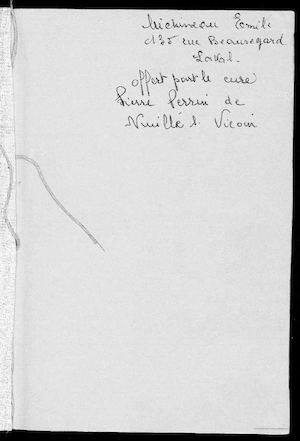 Michineau Emile
135 rue Beauregard
Laval.
offert part le curé
Pierre Perrin de
Nuillé s. Vicoin